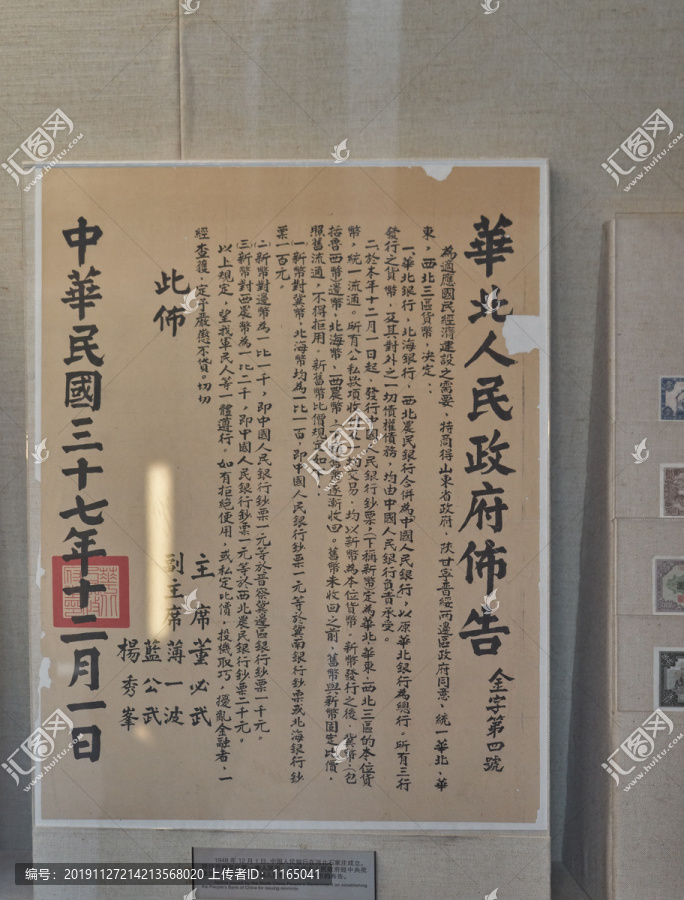 華北人民政府佈告
金字第四號
為適應國民經濟建設之需要，特商得山東省政府，陝甘寧晉綏兩邊區政府同意，統一華北、華
東，西北三區貨幣，決定：
一、華北銀行，北海銀行，西北農民銀行合併為中國人民銀行，以原華北銀行為總行。所有三行
發行之貨幣，及其對外之一切債權債務，均由中國人民銀行負責承受。
二於本年十二月一日起，發行中國人民銀行鈔票，（下稱新幣定為華北、華東、西北三區的本位貨
幣，統一流通。所有公私款項收付及一切交易，均以新幣為本位貨幣。新幣發行之後，冀幣（包
括魯西幣邊幣，北海幣，西農幣，逐漸收回。舊幣未收回之前，舊幣與新幣固定比價，
照舊流通，不得拒用。新舊幣比價規定如下：
一新幣對冀幣，北海幣均為一比一百，即中國人民銀行鈔票一元等於冀南銀行鈔票或北海銀行鈔
票一百元。
二新幣對邊幣為一比一千，即中國人民銀行鈔票一元等於晉察冀邊區銀行鈔票一千元。
三新幣對西農幣為一比二千，即中國人民銀行鈔票一元等於西北農民銀行鈔票二千元。
以上規定，望我軍民人等一體遵行。如有拒絕使用，或私定比價，投機取巧，擾亂金融者，一
經查獲，定予嚴懲不貸。切切
此佈
主席 董必武
副主席 薄一波
藍公武
楊秀峯
中華民國三十七年十二月一日
汇图网
www.huitu.com
编号：20191127214213568020 ID：1165041